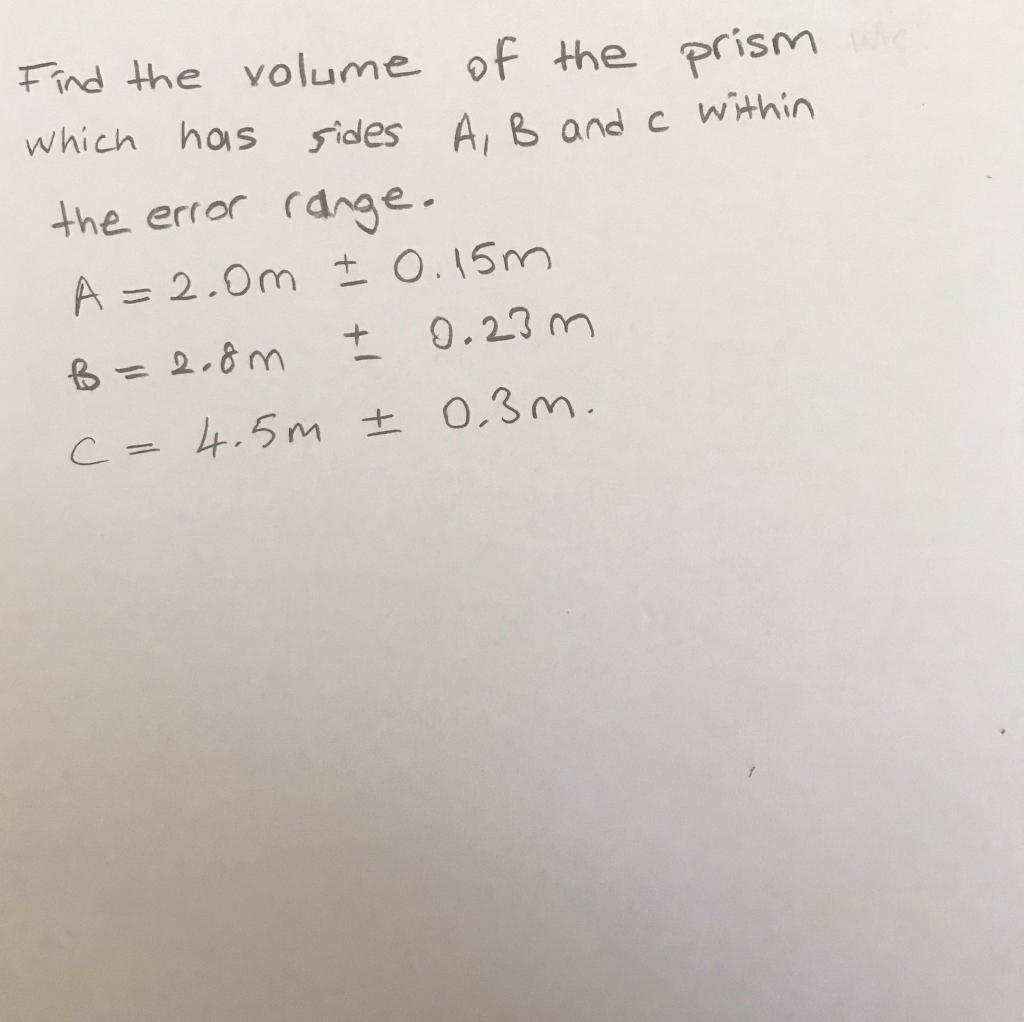 Find the volume of the prism
which has sides A, B and c within
the error range.
A = 2.0m ± 0.15m
B = 2.8m ± 0.23m
C = 4.5m ± 0.3m.